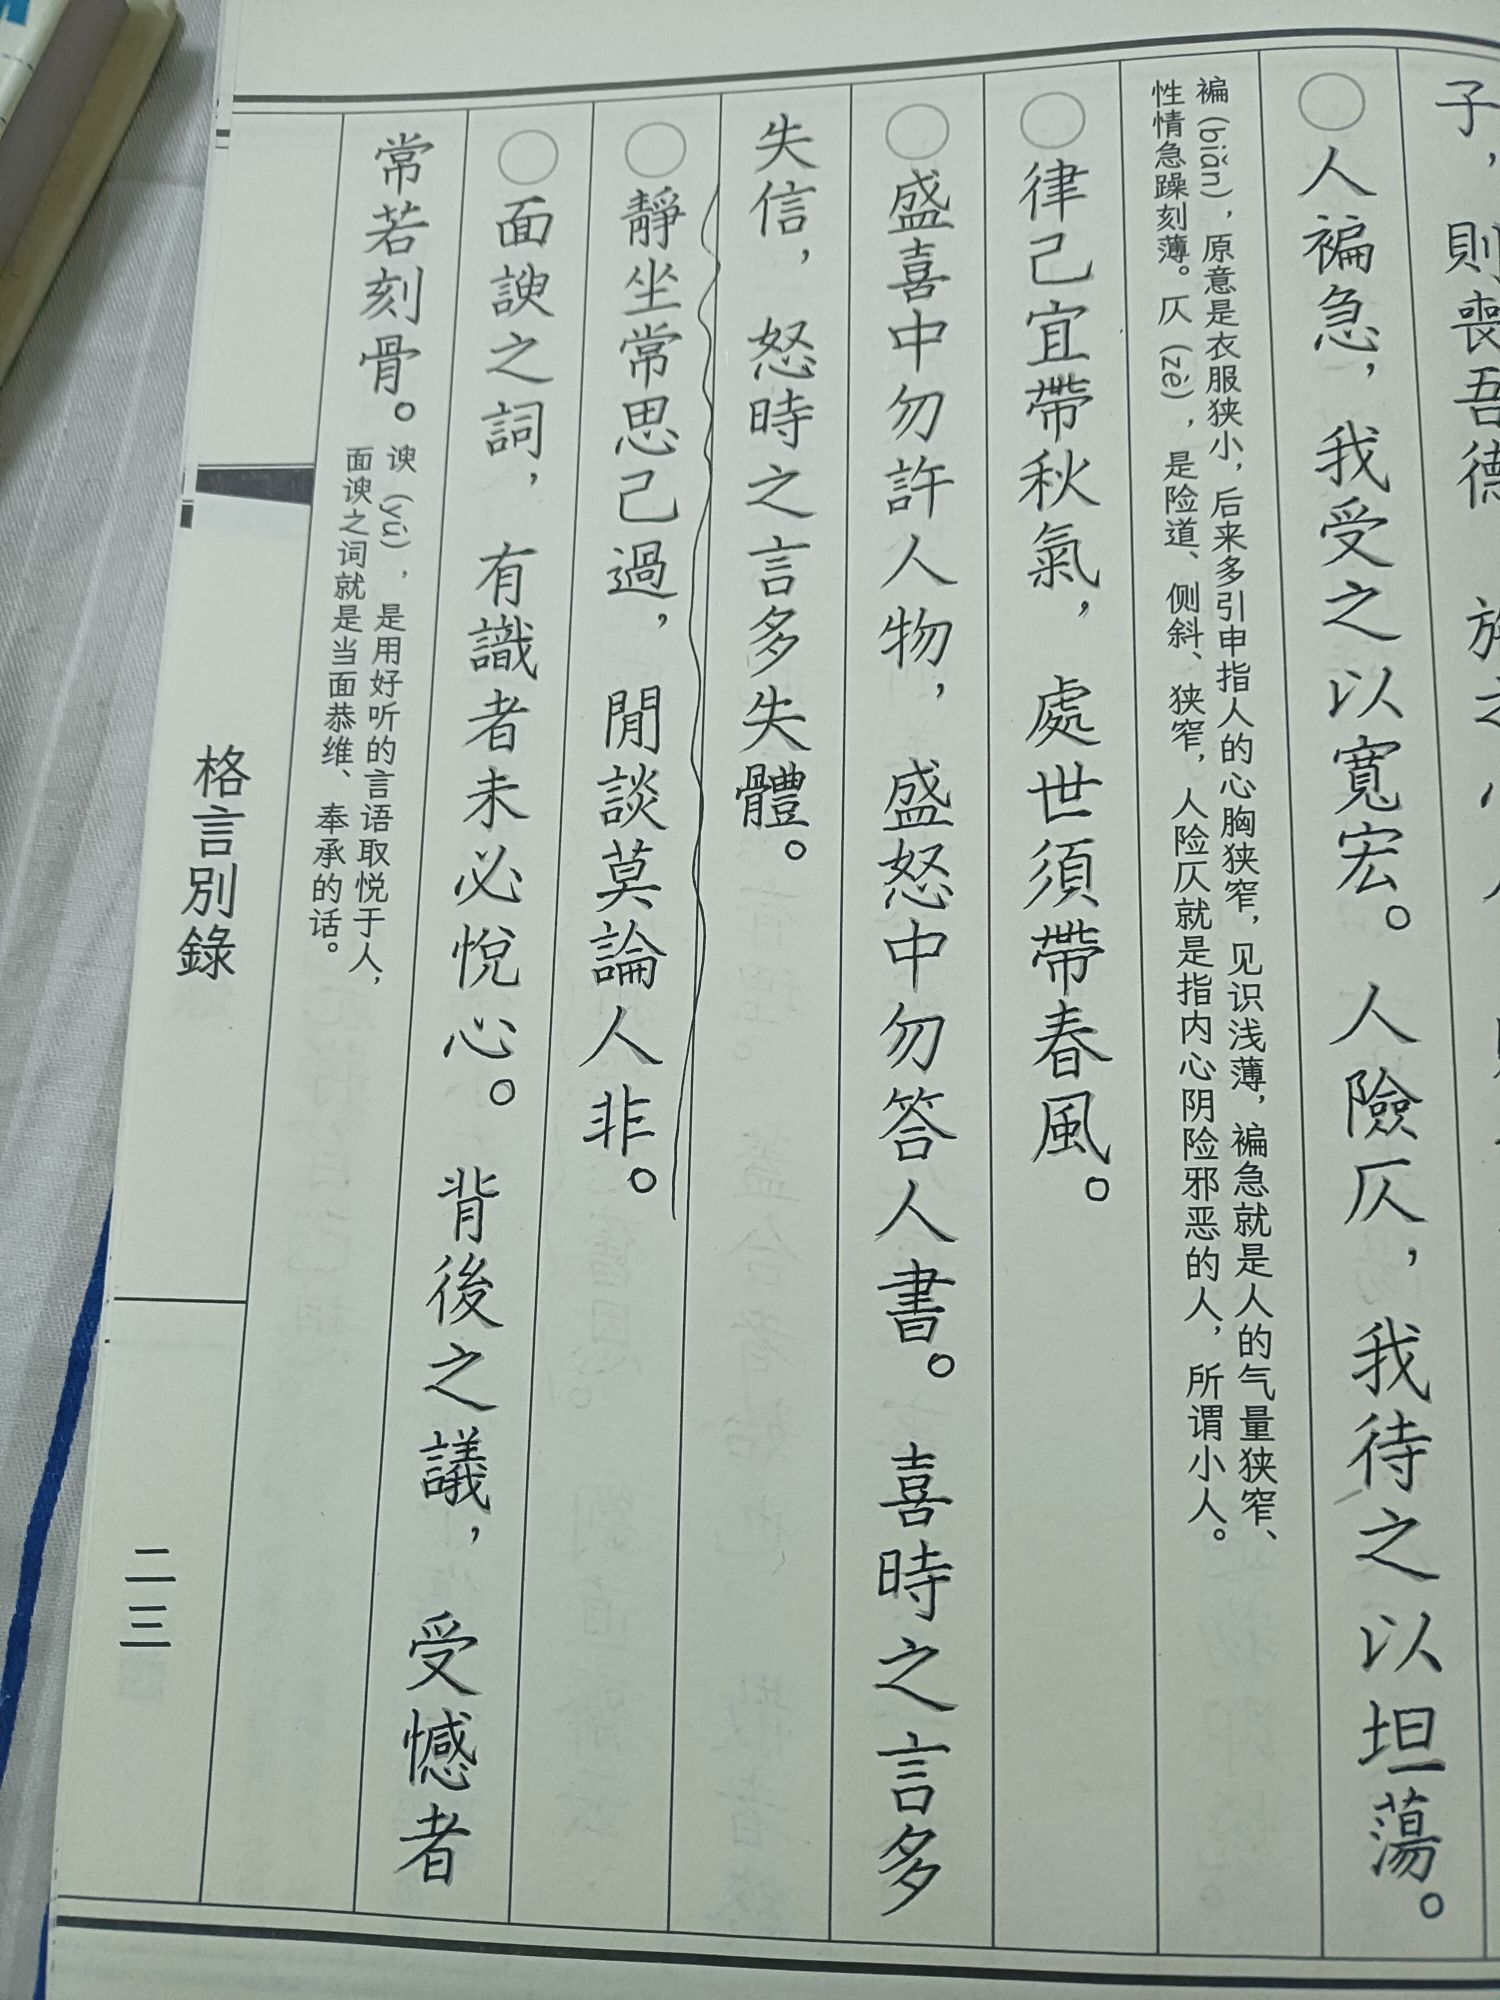 子，則喪吾德
○人褊急，我受之以寬宏。人險仄，我待之以坦蕩。
褊（biǎn），原意是衣服狭小，后来多引申指人的心胸狭窄，见识浅薄，褊急就是人的气量狭窄、
性情急躁刻薄。仄（zè），是险道、侧斜、狭窄，人险仄就是指内心阴险邪恶的人，所谓小人。
○律己宜帶秋氣，處世須帶春風。
○盛喜中勿許人物，盛怒中勿答人書。喜時之言多
失信，怒時之言多失體。
○靜坐常思己過，閒談莫論人非。
○面諛之詞，有識者未必悅心。背後之議，受憾者
常若刻骨。
谀（yú），是用好听的言语取悦于人，
面谀之词就是当面恭维、奉承的话。
格言別錄
二三